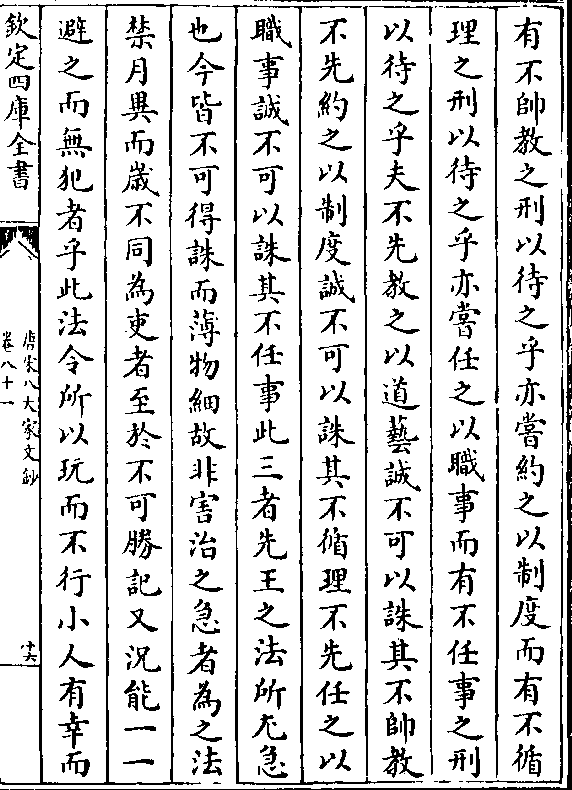 有不帥教之刑以待之乎亦嘗約之以制度而有不循
理之刑以待之乎亦嘗任之以職事而有不任事之刑
以待之乎夫不先教之以道藝誠不可以誅其不帥教
不先約之以制度誠不可以誅其不循理不先任之以
職事誠不可以誅其不任事此三者先王之法所尤急
也今皆不可得誅而薄物細故非害治之急者為之法
禁月異而嵗不同為吏者至於不可勝記又況能一一
避之而無犯者乎此法令所以玩而不行小人有幸而
欽定四庫全書
唐宋八大家文鈔
卷八十一
十六